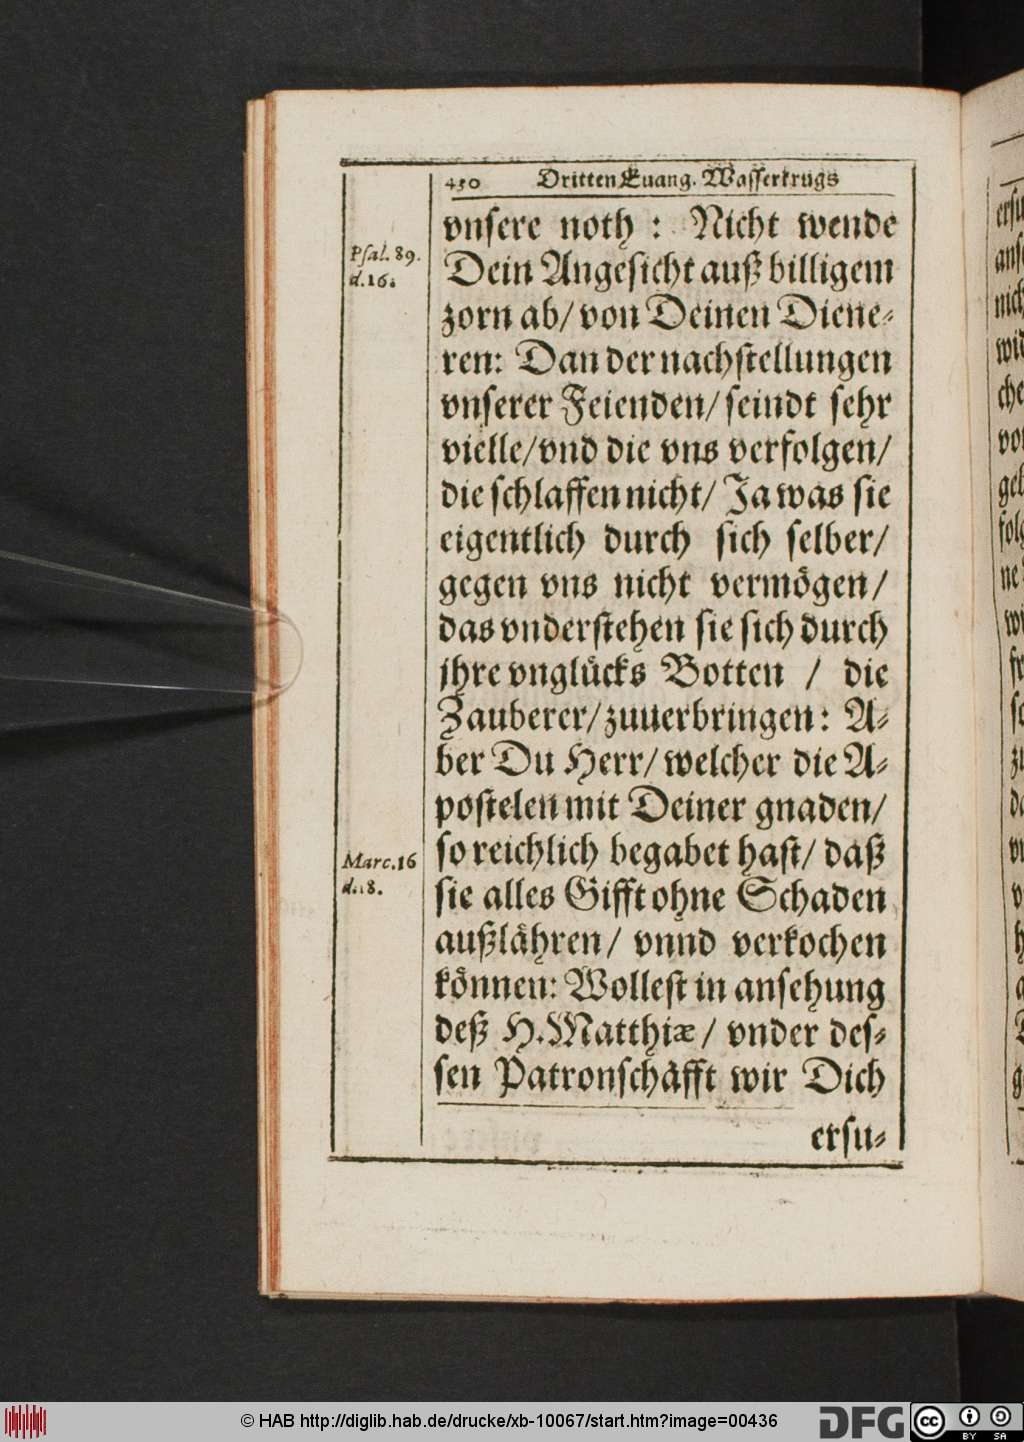 450 Dritten Euang. Wasserkrugs
vnsere noth : Nicht wende
Psal. 89.
d.16.
Dein Angesicht auß billigem
zorn ab/ von Deinen Diene-
ren: Dan der nachstellungen
vnserer Feienden/ seindt sehr
vielle/ vnd die vns verfolgen/
die schlaffen nicht/ Ja was sie
eigentlich durch sich selber/
gegen vns nicht vermögen/
das vnderstehen sie sich durch
jhre vnglücks Botten / die
Zauberer/ zuuerbringen: A-
ber Du Herr/ welcher die A-
postelen mit Deiner gnaden/
so reichlich begabet hast/ daß
Marc.16
d.18.
sie alles Gifft ohne Schaden
außlähren/ vnnd verkochen
können: Wollest in ansehung
deß H. Matthiæ/ vnder des-
sen Patronschäfft wir Dich
ersu-
© HAB http://diglib.hab.de/drucke/xb-10067/start.htm?image=00436
DFG
cc BY SA